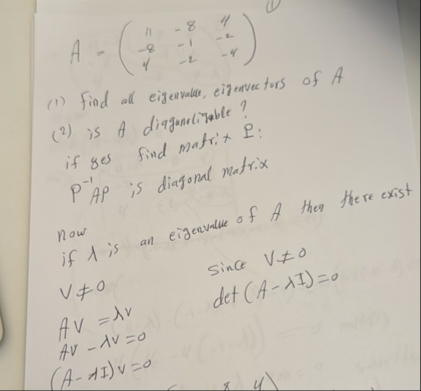 (1)
A = ( 11 -8 4
-8 -1 -2
4 -2 -4 )
(1) find all eigenvalue, eigenvectors of A
(2) is A diagonalizable ?
if yes find matrix P:
P⁻¹AP is diagonal matrix
now
if λ is an eigenvalue of A then there exist
V≠0 since V≠0
AV = λV det (A - λI) = 0
AV - λV = 0
(A - λI) V = 0